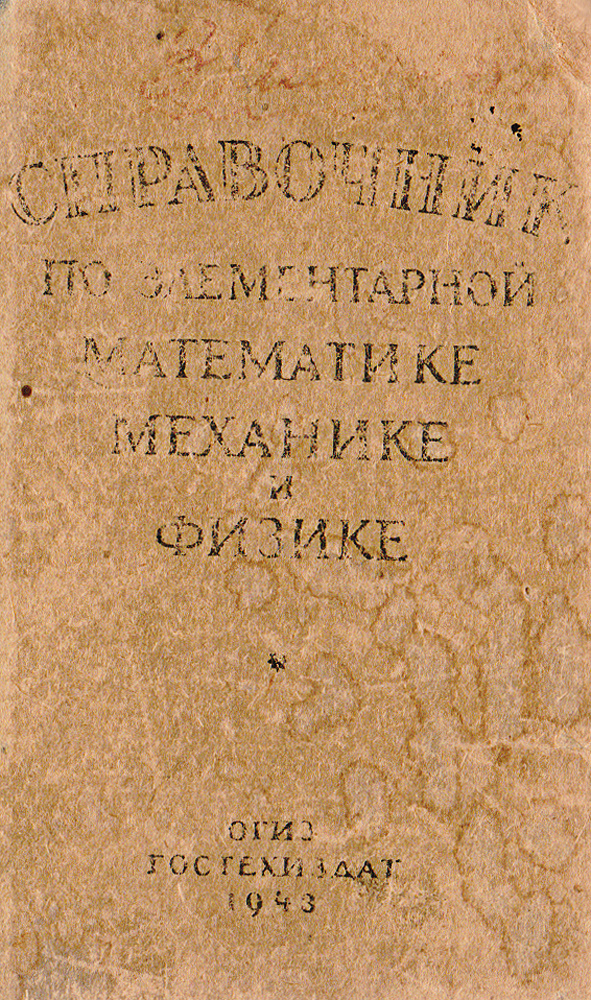 СПРАВОЧНИК
ПО ЭЛЕМЕНТАРНОЙ
МАТЕМАТИКЕ
МЕХАНИКЕ
И
ФИЗИКЕ
*
ОГИЗ
ГОСТЕХИЗДАТ
1943